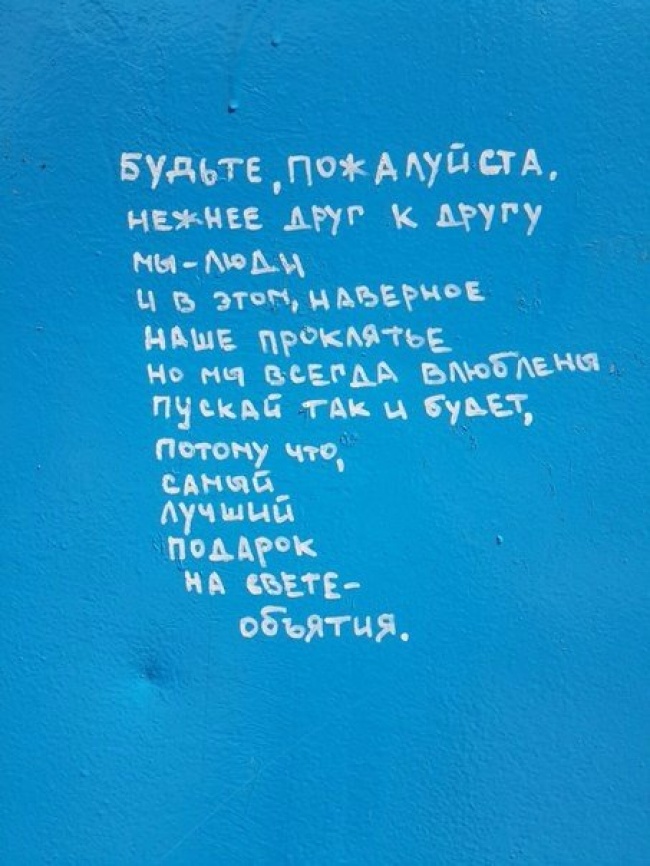 БУДЬТЕ, ПОЖАЛУЙСТА.
НЕЖНЕЕ ДРУГ К ДРУГУ
МЫ-ЛЮДИ
И В ЭТОМ, НАВЕРНОЕ
НАШЕ ПРОКЛЯТЬЕ
НО МЫ ВСЕГДА ВЛЮБЛЕНЫ.
ПУСКАЙ ТАК И БУДЕТ,
ПОТОМУ ЧТО,
САМЫЙ
ЛУЧШИЙ
ПОДАРОК
НА СВЕТЕ-
ОБЪЯТИЯ.